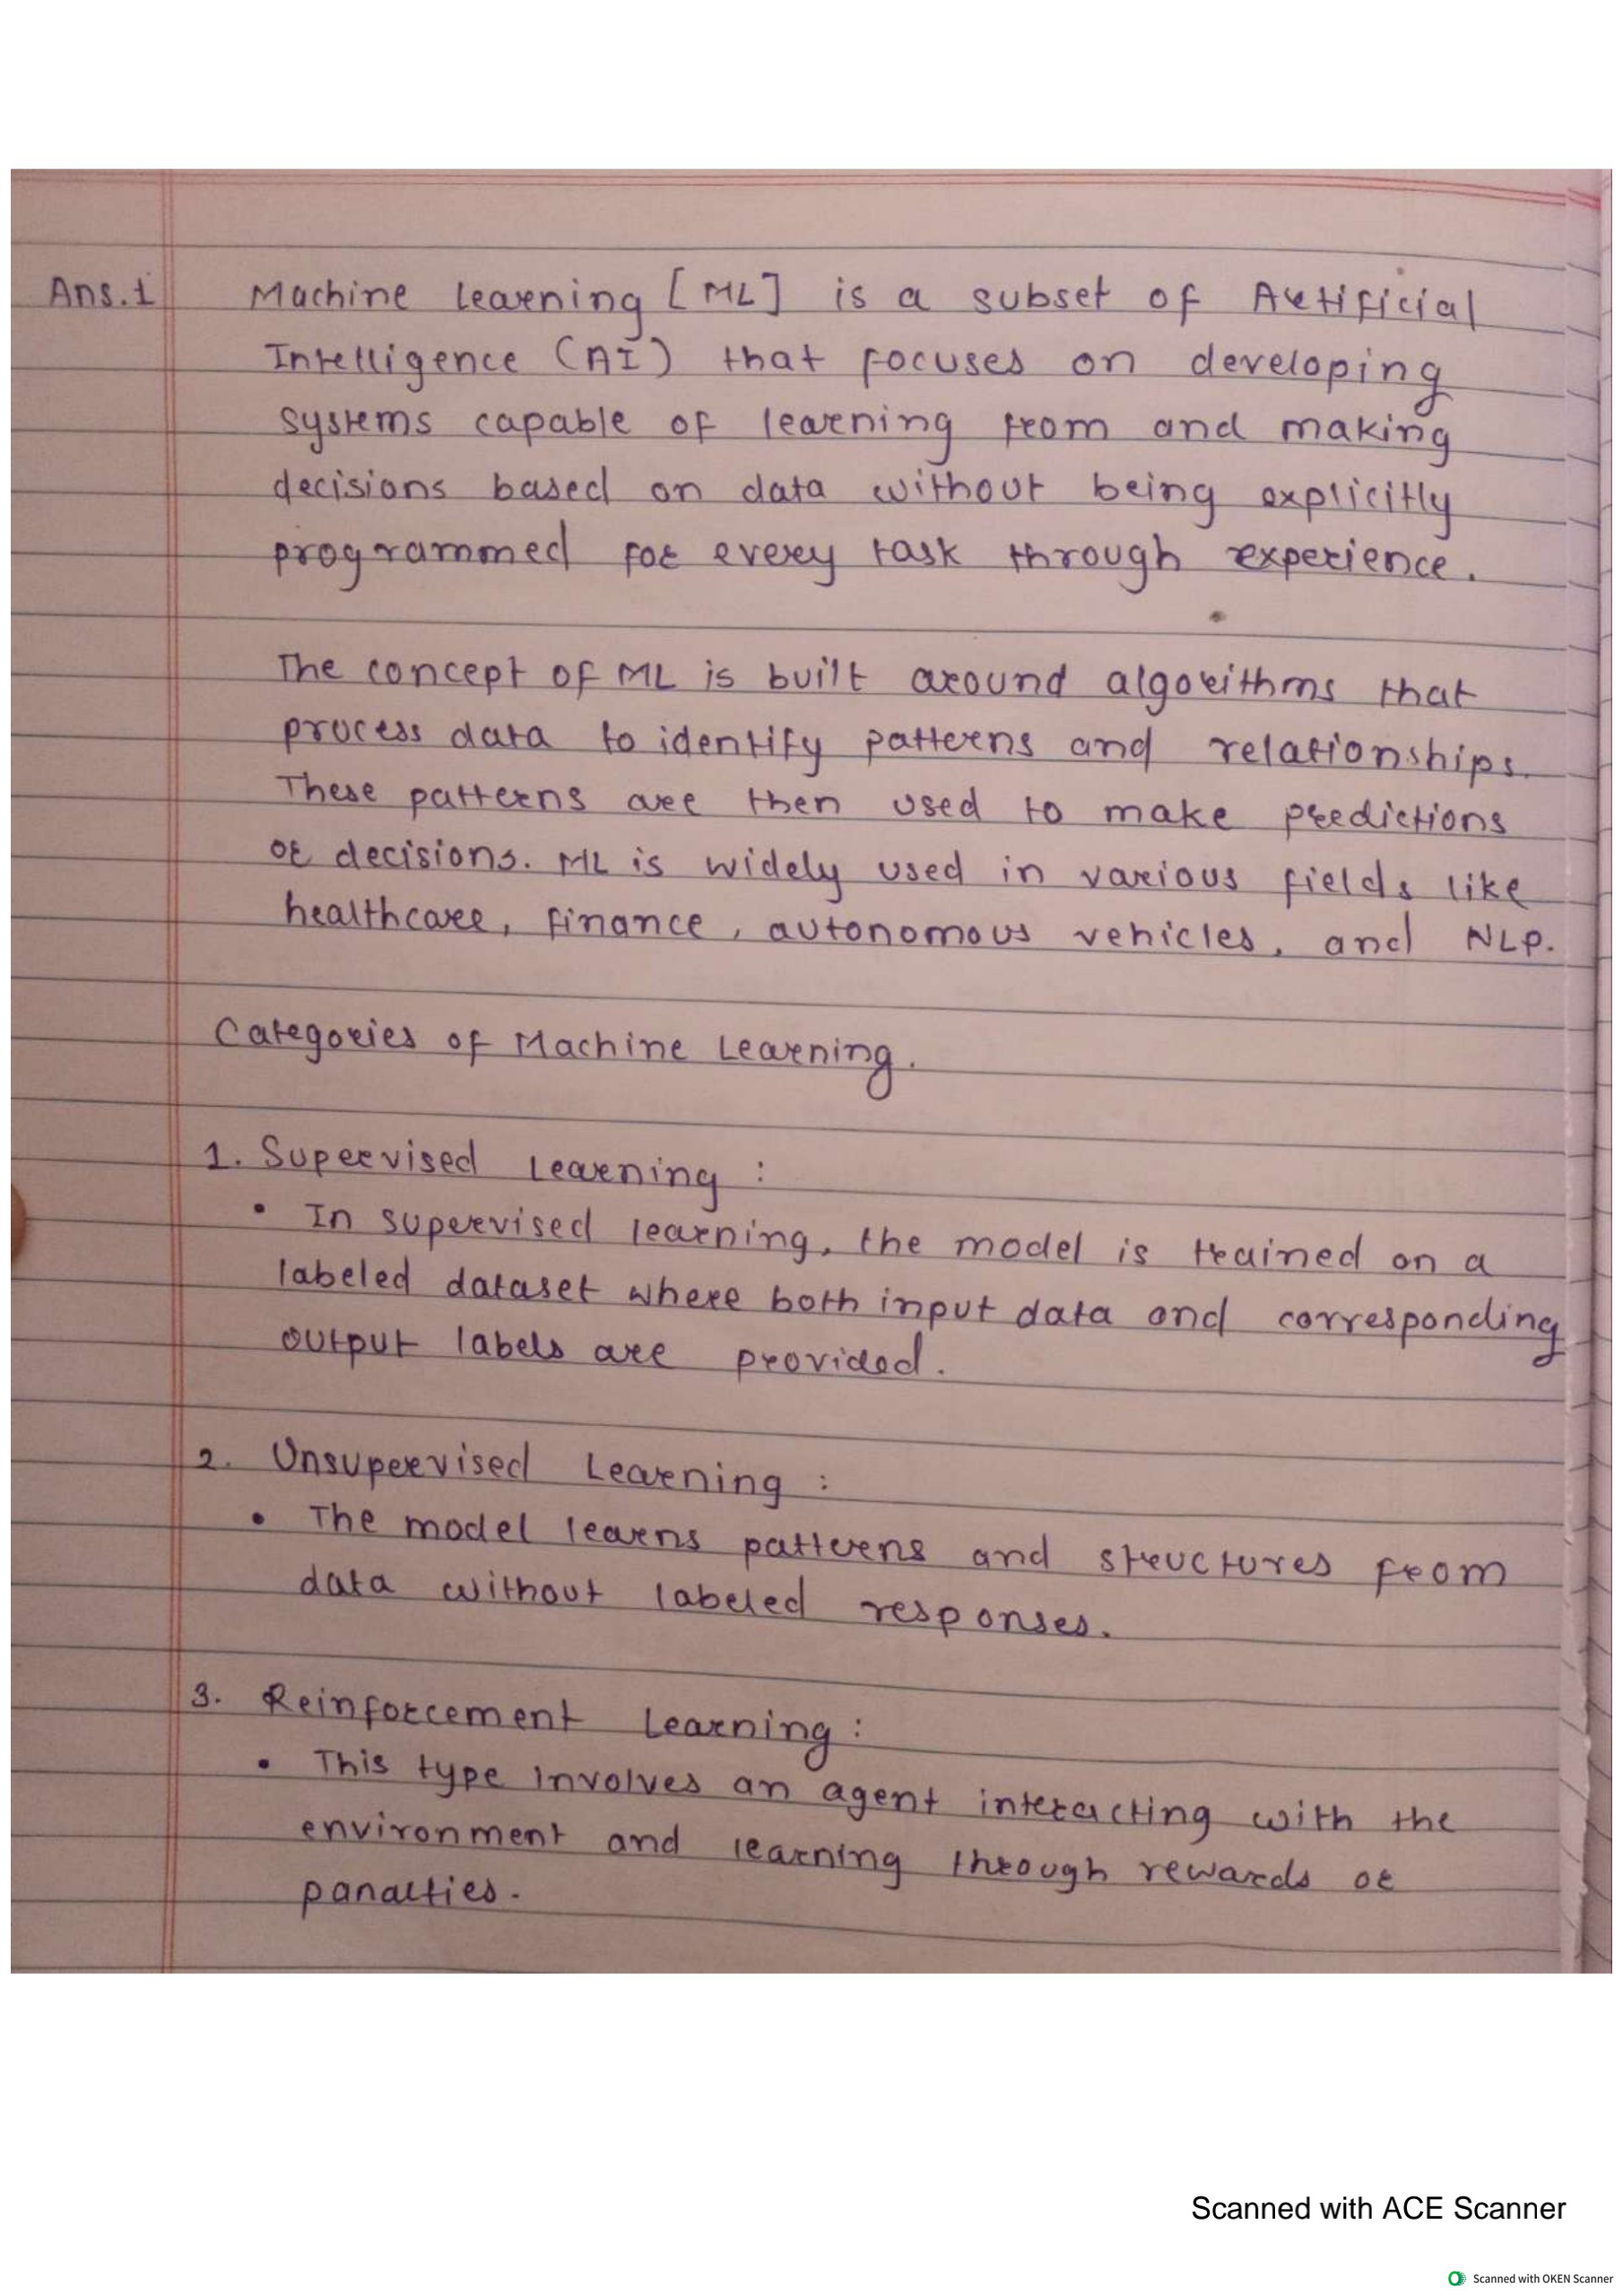 Ans.1 Machine Learning [ML] is a subset of Artificial
Intelligence (AI) that focuses on developing
systems capable of learning from and making
decisions based on data without being explicitly
programmed for every task through experience.
The concept of ML is built around algorithms that
process data to identify patterns and relationships.
These patterns are then used to make predictions
or decisions. ML is widely used in various fields like
healthcare, finance, autonomous vehicles, and NLP.
Categories of Machine Learning.
1. Supervised Learning :
• In supervised learning, the model is trained on a
labeled dataset where both input data and corresponding
output labels are provided.
2. Unsupervised Learning :
• The model learns patterns and structures from
data without labeled responses.
3. Reinforcement Learning :
• This type involves an agent interacting with the
environment and learning through rewards or
panalties.
Scanned with ACE Scanner
Scanned with OKEN Scanner